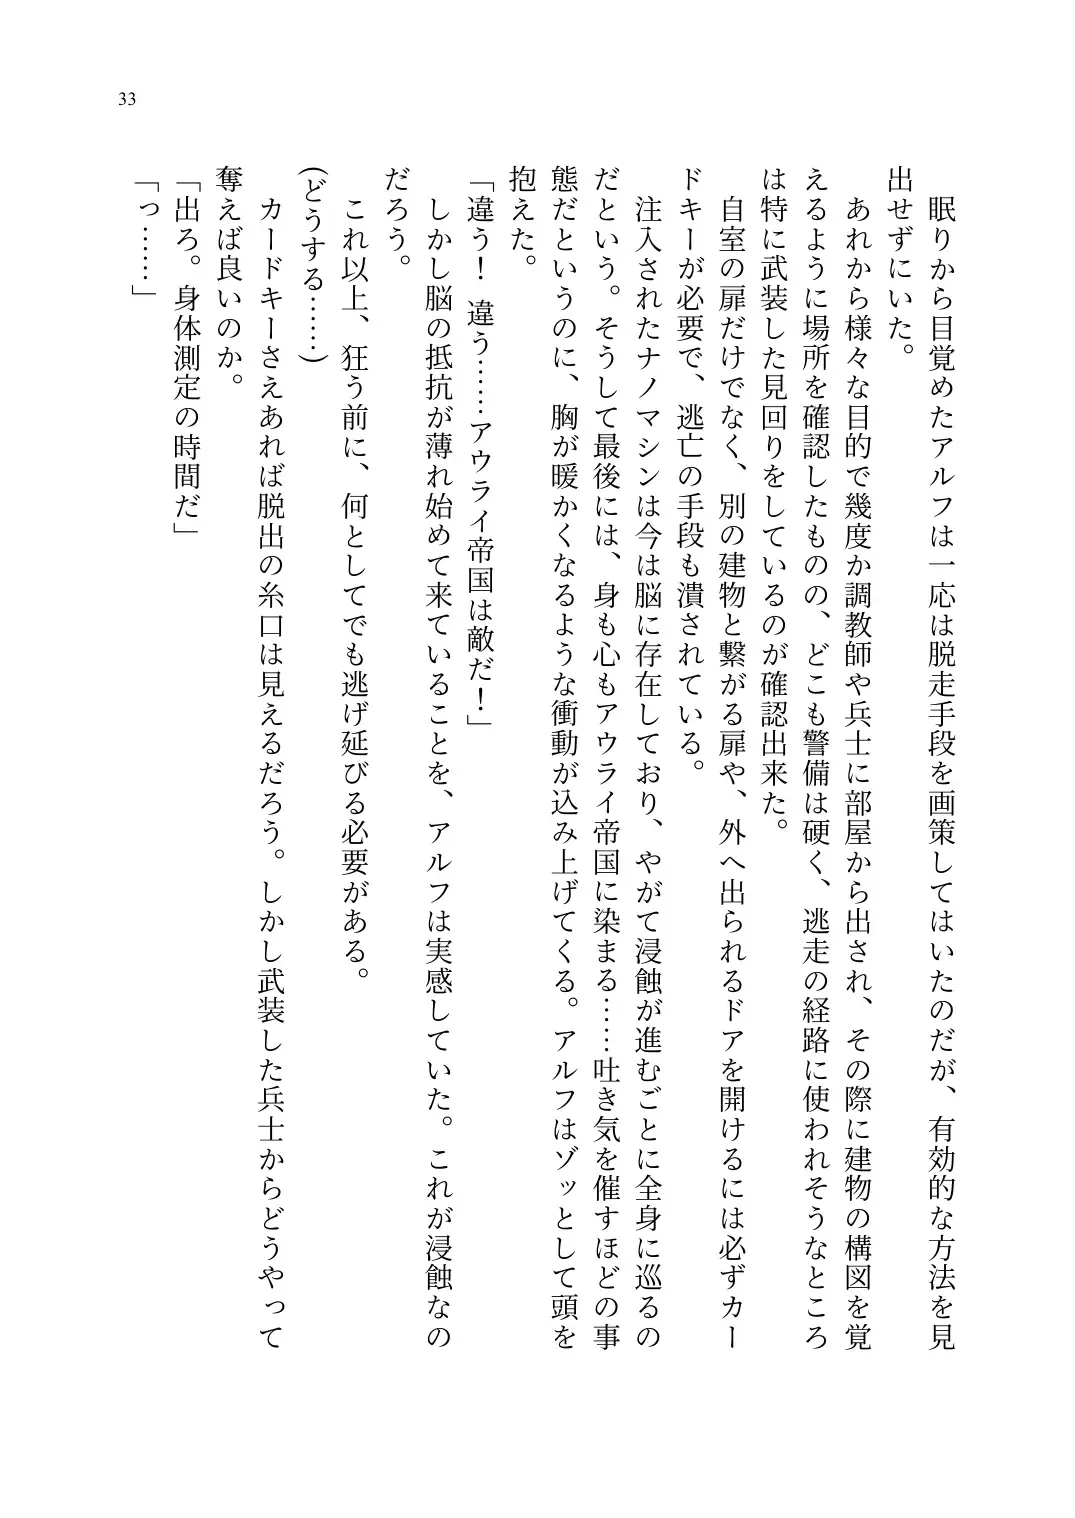 33
眠りから目覚めたアルフは一応は脱走手段を画策してはいたのだが、有効的な方法を見
出せずにいた。
あれから様々な目的で幾度か調教師や兵士に部屋から出され、その際に建物の構図を覚
えるように場所を確認したものの、どこも警備は硬く、逃走の経路に使われそうなところ
は特に武装した見回りをしているのが確認出来た。
自室の扉だけでなく、別の建物と繋がる扉や、外へ出られるドアを開けるには必ずカー
ドキーが必要で、逃亡の手段も潰されている。
注入されたナノマシンは今は脳に存在しており、やがて浸蝕が進むごとに全身に巡るの
だという。そうして最後には、身も心もアウライ帝国に染まる……吐き気を催すほどの事
態だというのに、胸が暖かくなるような衝動が込み上げてくる。アルフはゾッとして頭を
抱えた。
「違う！　違う……アウライ帝国は敵だ！」
しかし脳の抵抗が薄れ始めて来ていることを、アルフは実感していた。これが浸蝕なの
だろう。
これ以上、狂う前に、何としてでも逃げ延びる必要がある。
(どうする……)
カードキーさえあれば脱出の糸口は見えるだろう。しかし武装した兵士からどうやって
奪えば良いのか。
「出ろ。身体測定の時間だ」
「っ……」